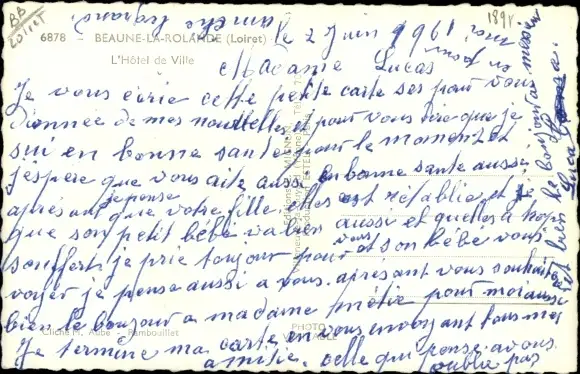 BB
LOIRET
189V
6878 - BEAUNE-LA-ROLANDE (Loiret)
L'Hôtel de Ville
le 2 Juin 1961
Madame Lucas
Je vous écrie cette petite carte ses pour vous
donnée de mes nouvelles et pour vous dire que je
sui en bonne sante pour le moment et
j'espère que vous aite aussi en bonne sante aussi
réponse
après ant que votre fille elles est rétablie et
que son petit bébé va bien aussi et quelles a trop
souffert je prie toujour pour vous et son bébé vous
voyer je pense aussi a vous. après ant vous souhaiter
bien le bonjour a madame pour moi aussi
Je termine ma carte en vous envoyant tous mes
amitie. celle qui pense a vous
oublie pas
et bien le bonjour a
Luca
Cliché M. Aubé - Rambouillet
PHOTO